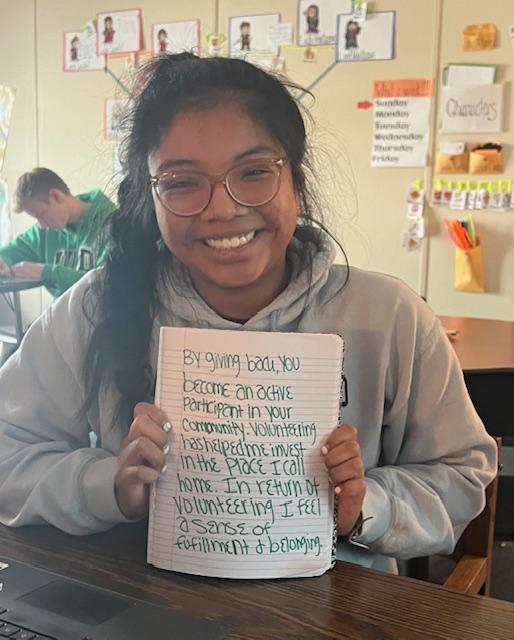 What's week?
Sunday
Monday
Tuesday
Wednesday
Thursday
Friday
Characters
By giving bacu, you
become an active
participant in your
community. Volunteering
has helped me invest
in the place I call
home. In return of
volunteering I feel
a sense of
fufillment & belonging.